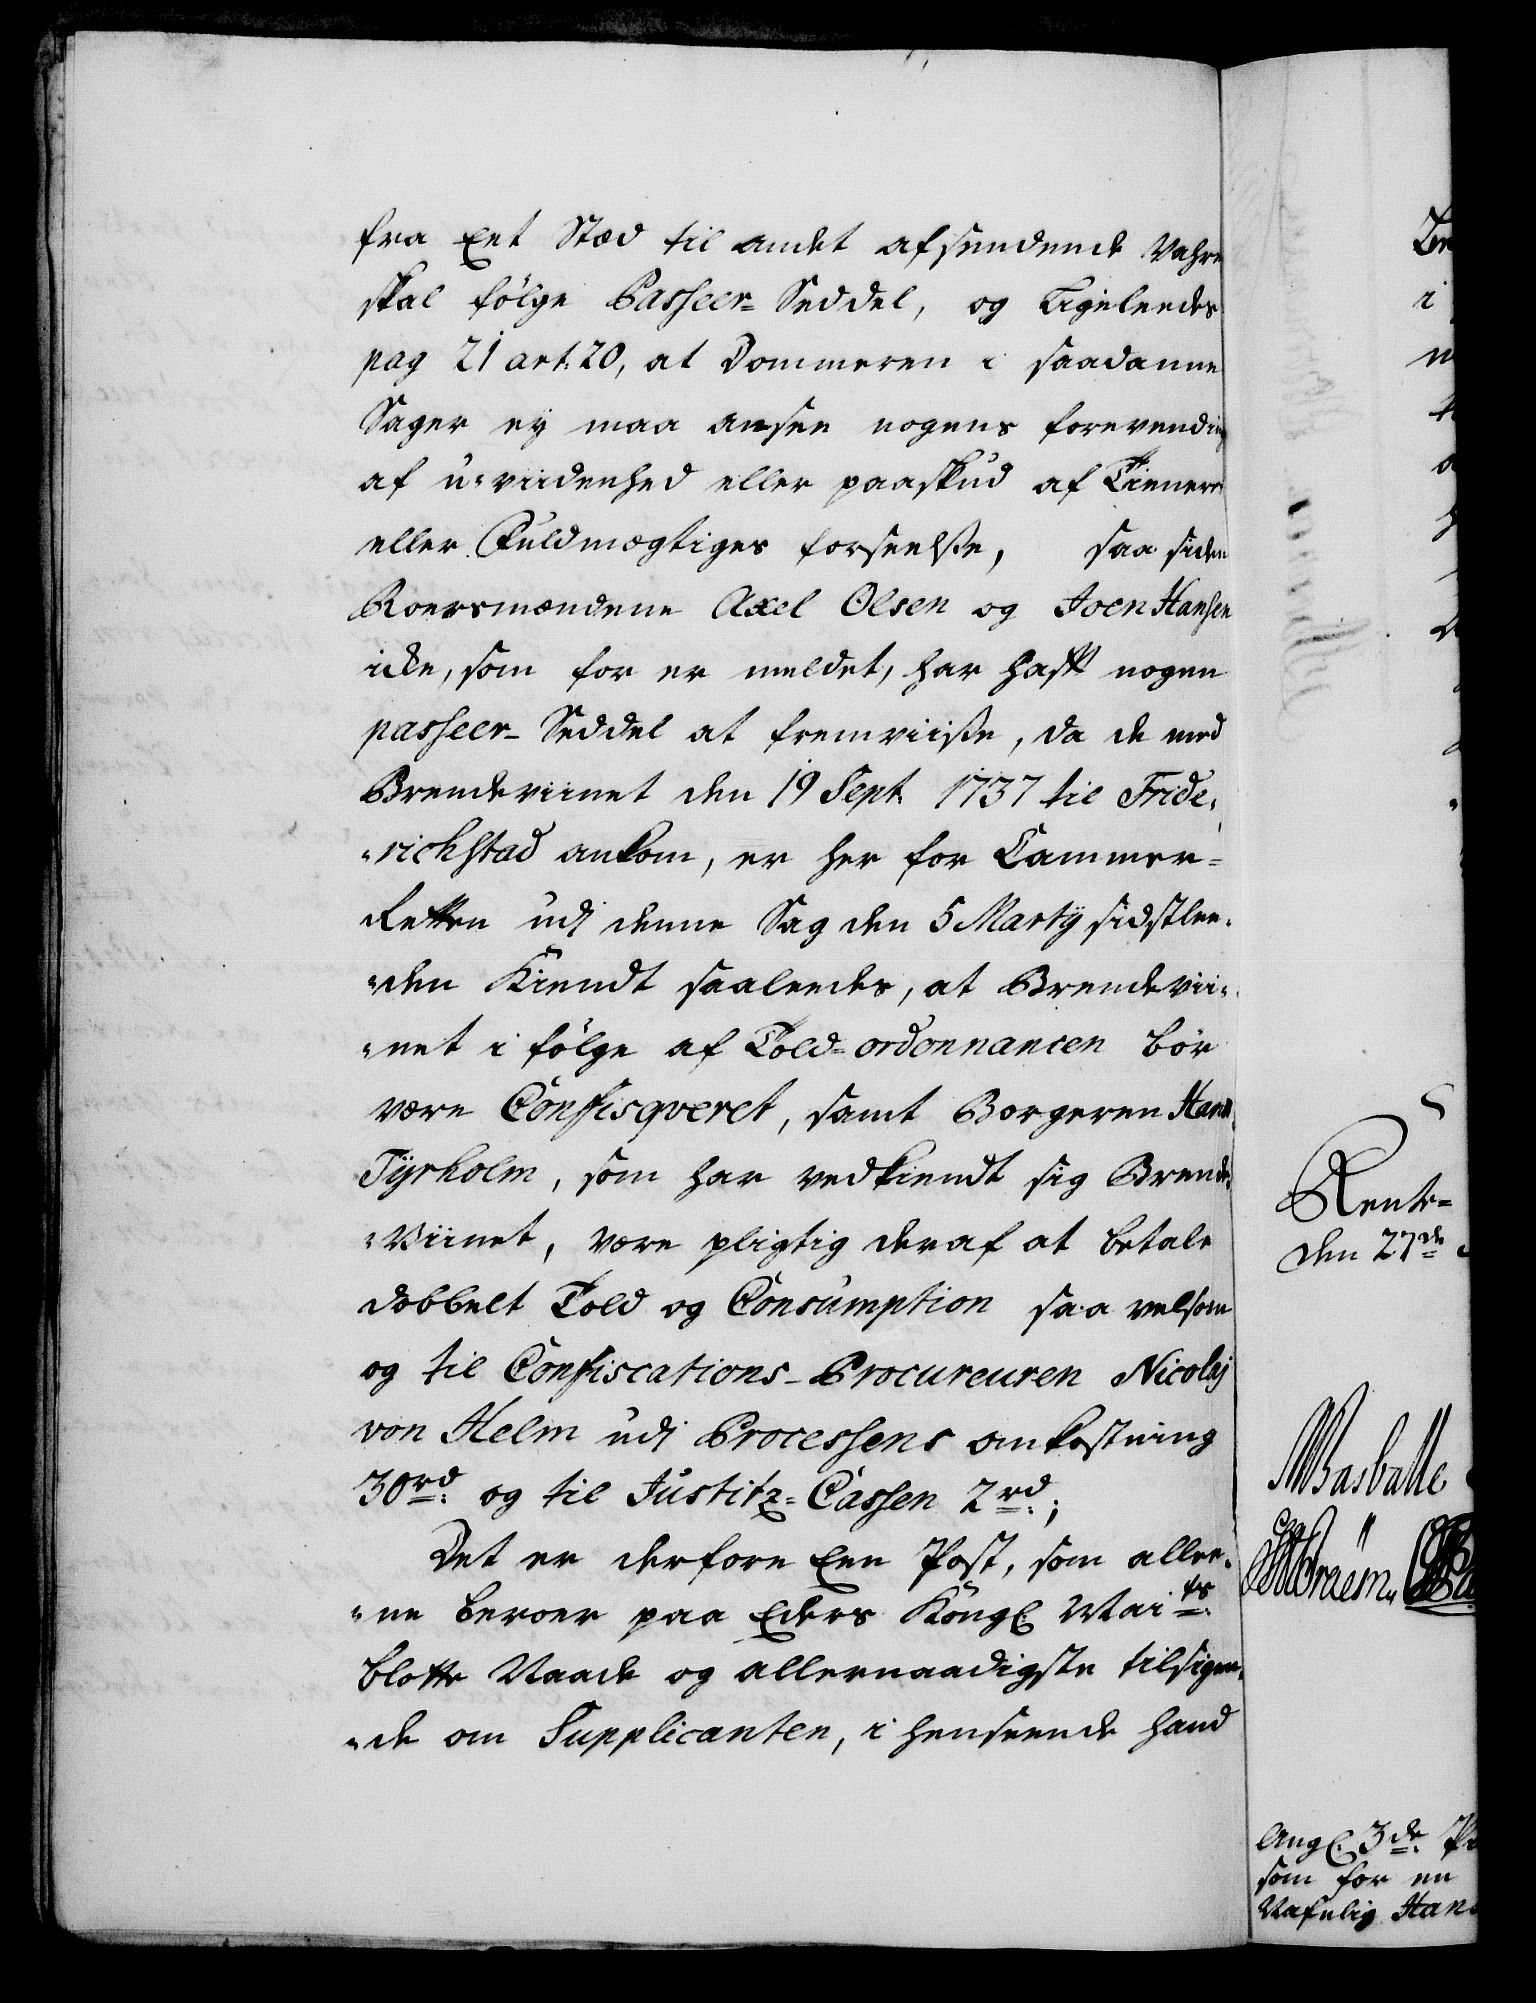 fra Eet Stæd til andet afsendende Vahre
skal følge Passeer-Seddel, og ligeleedes
pag 21 art: 20, at Dommeren i saadanne
Sager ey maa ansee nogens forevending
af u-viidenhed eller paaskud af Tienere
eller Fuldmægtiges forseelsse, saa siden
Roersmændene Axel Olsen og Joen Hansen
icke, som for er meldet, har hafft nogen
passeer-Seddel at fremviisse, da de med
Brendeviinet den 19 Sept: 1737 til Fride,
„richstad ankom, er her for Cammer-
Retten udj denne Sag den 5 Martÿ sidstlee„
„den Kiendt saaleedes, at Brendevii„
„net i følge af Told-ordonnancen bør
være Confisqveret, samt Borgeren Hans
Tyrholm, som har vedkiendt sig Brende„
„Viinet, være pligtig deraf at betale
dobbelt Told og Consumption saa velsom
og til Confiscations-Procureuren Nicolaj
von Helm udj Processens omkostning
30 rd: og til Justitz-Cassen 2 rd:;
Det er derfore Een Post, som allee„
„ne beroer paa Eders Kongl: Maits:
blotte Naade og allernaadigste tilsigen„
„de om Supplicanten, i henseende hand
i
Rente-
den 27de
Angl: 3de
som for en
Nafnlig Hans